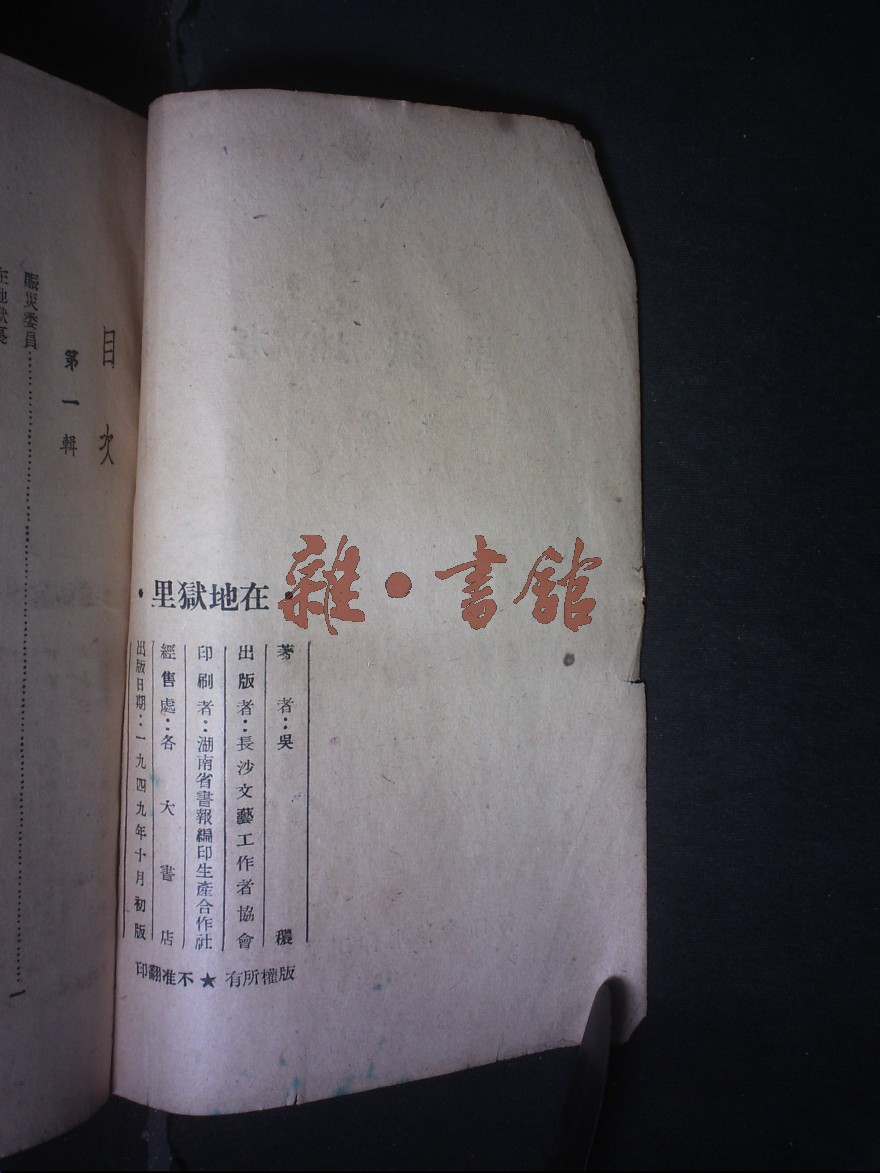 •在地獄里•
著者：吳穠
出版者：長沙文藝工作者協會
印刷者：湖南省書報編印生產合作社
經售處：各大書店
出版日期：一九四九年十月初版
版權所有★不准翻印
雜•書館
目次
第一輯
賑災委員……一
在地獄裏